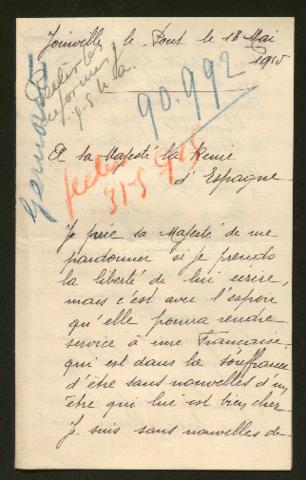 Joinville le Pont le 18 Mai
1915
90.992
A sa Majesté la Reine
d'Espagne
31-5-915
Je prie sa Majesté de me
pardonner si je prends
la liberté de lui écrire,
mais c'est avec l'espoir
qu'elle pourra rendre
service à une Française,
qui est dans la souffrance
d'être sans nouvelles d'un
être qui lui est bien cher
Je suis sans nouvelles de